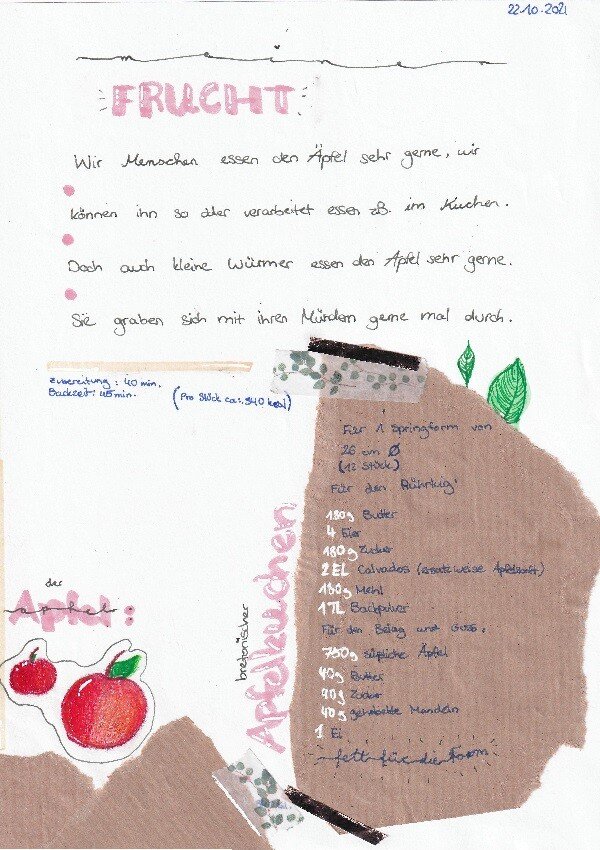 22.10.2021
meinen
FRUCHT
Wir Menschen essen den Äpfel sehr gerne, wir
können ihn so oder verarbeitet essen z.B. im Kuchen.
Doch auch kleine Würmer essen den Apfel sehr gerne.
Sie graben sich mit ihren Mündern gerne mal durch.
Zubereitung: 40 min.
Backzeit: 45 min.
(Pro Stück ca.: 340 kcal)
Für 1 Springform von
26 cm Ø
(12 Stück)
Für den Rührteig:
180g Butter
4 Eier
180g Zucker
2 EL Calvados (ersatzweise Apfelsaft)
180g Mehl
1 TL Backpulver
Für den Belag und Guss:
750g süßliche Äpfel
40g Butter
90g Zucker
40g gehackte Mandeln
1 Ei
fett für die Form
bretonischer
Apfelkuchen
der
Apfel:
apfel